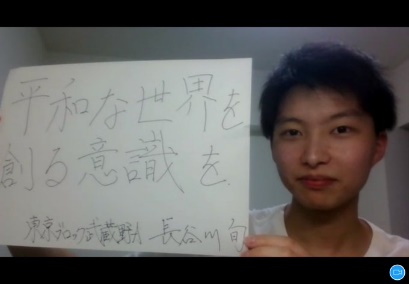 平和な世界を
創る意識を
東京ブロック武蔵野人 長谷川 旬